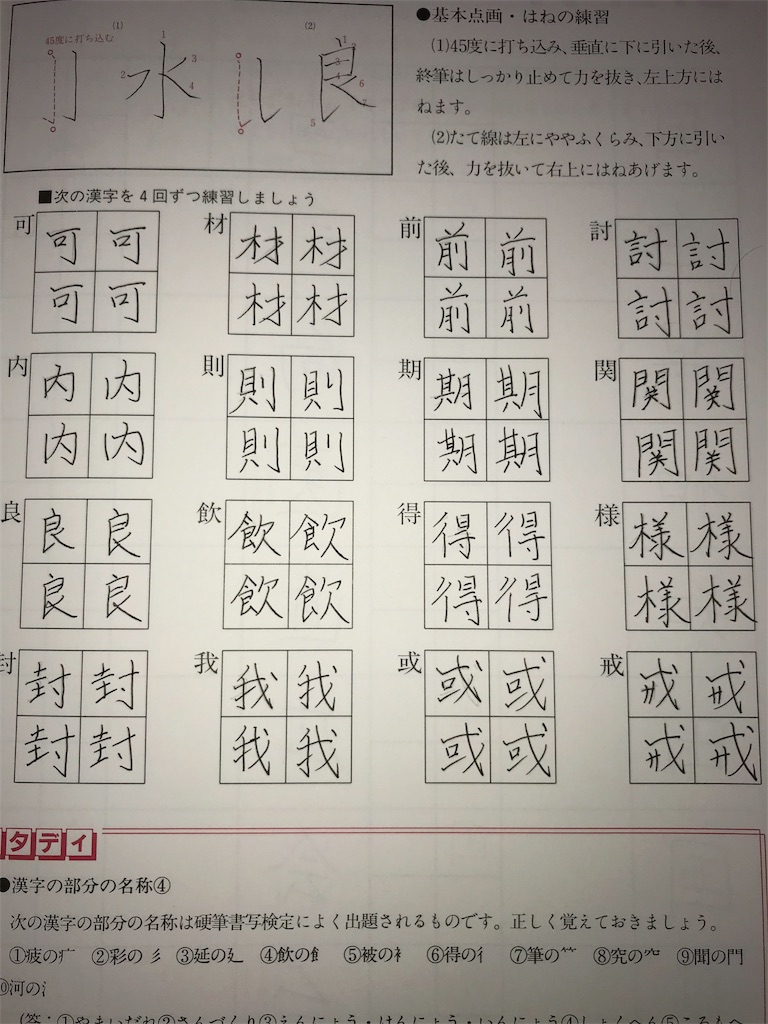 45度に打ち込む
(1)
水
1
2
3
4
(2)
良
1
2
3
4
5
6
7
●基本点画・はねの練習
(1)45度に打ち込み、垂直に下に引いた後、
終筆はしっかり止めて力を抜き、左上方には
ねます。
(2)たて線は左にややふくらみ、下方に引い
た後、力を抜いて右上にはねあげます。
■次の漢字を4回ずつ練習しましょう
可 可 可 材 材 材 前 前 前 討 討 討
可 可 材 材 前 前 討 討
内 内 内 則 則 則 期 期 期 関 関 関
内 内 則 則 期 期 関 関
良 良 良 飲 飲 飲 得 得 得 様 様 様
良 良 飲 飲 得 得 様 様
封 封 封 我 我 我 或 或 或 戒 戒 戒
封 封 我 我 或 或 戒 戒
タディ
●漢字の部分の名称④
次の漢字の部分の名称は硬筆書写検定によく出題されるものです。正しく覚えておきましょう。
①疲の疒 ②彩の彡 ③延の廴 ④飲の飠 ⑤被の衤 ⑥得の彳 ⑦筆の⺮ ⑧究の穴 ⑨聞の門
⑩河の氵
(答:①やまいだれ②さんづくり③えんにょう・けんにょう・いんにょう④しょくへん⑤ころもへ